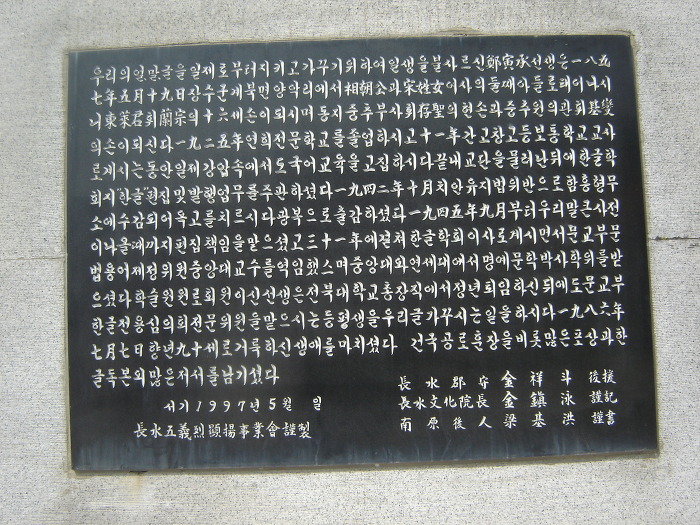 우리의 얼 말글을 일제로부터 지키고 가꾸기 위하여 일생을 불사르신 鄭寅承 선생은 一八五
七年 五月 十九日 장수군 계북면 양악리에서 相朝公과 宋姓女 여사의 둘째 아들로 태어나시
니 東萊君 휘 蘭宗의 十六세손이 되시며 동지중추부사 휘 存聖의 현손과 중추원의관 휘 基燮
의 손이 되신다 一九二五年 연희전문학교를 졸업하시고 十一年간 고창고등보통학교 교사
로 계시는 동안 일제 강압속에서도 국어교육을 고집하시다 끝내 교단을 물러난 뒤에 한글학
회지 "한글" 편집 및 발행업무를 주관하셨다 一九四二年 十月 치안유지법 위반으로 함흥형무
소에 수감되어 옥고를 치르시다 광복으로 출감하셨다 一九四五年 九月부터 우리말 큰사전
이 나올 때까지 편집 책임을 맡으셨고 三十一年에 걸쳐 한글학회 이사로 계시면서 문교부 문
법용어 제정위원 중앙대 교수를 역임했으며 중앙대와 연세대에서 명예문학박사 학위를 받
으셨다 학술원 원로회원이신 선생은 전북대학교 총장직에서 정년퇴임하신 뒤에도 문교부
한글전용심의회 전문위원을 맡으시는 등 평생을 우리글 가꾸시는 일을 하시다 一九八六年
七月 七日 향년 九十세로 거룩하신 생애를 마치셨다 건국공로훈장을 비롯 많은 포상과 한
글독본외 많은 저서를 남기셨다
長水郡守 金祥斗 後援
서기 1997년 5월 일 長水文化院長 金鎭泳 謹記
長水五義烈顯揚事業會 謹製 南原後人 梁基洪 謹書